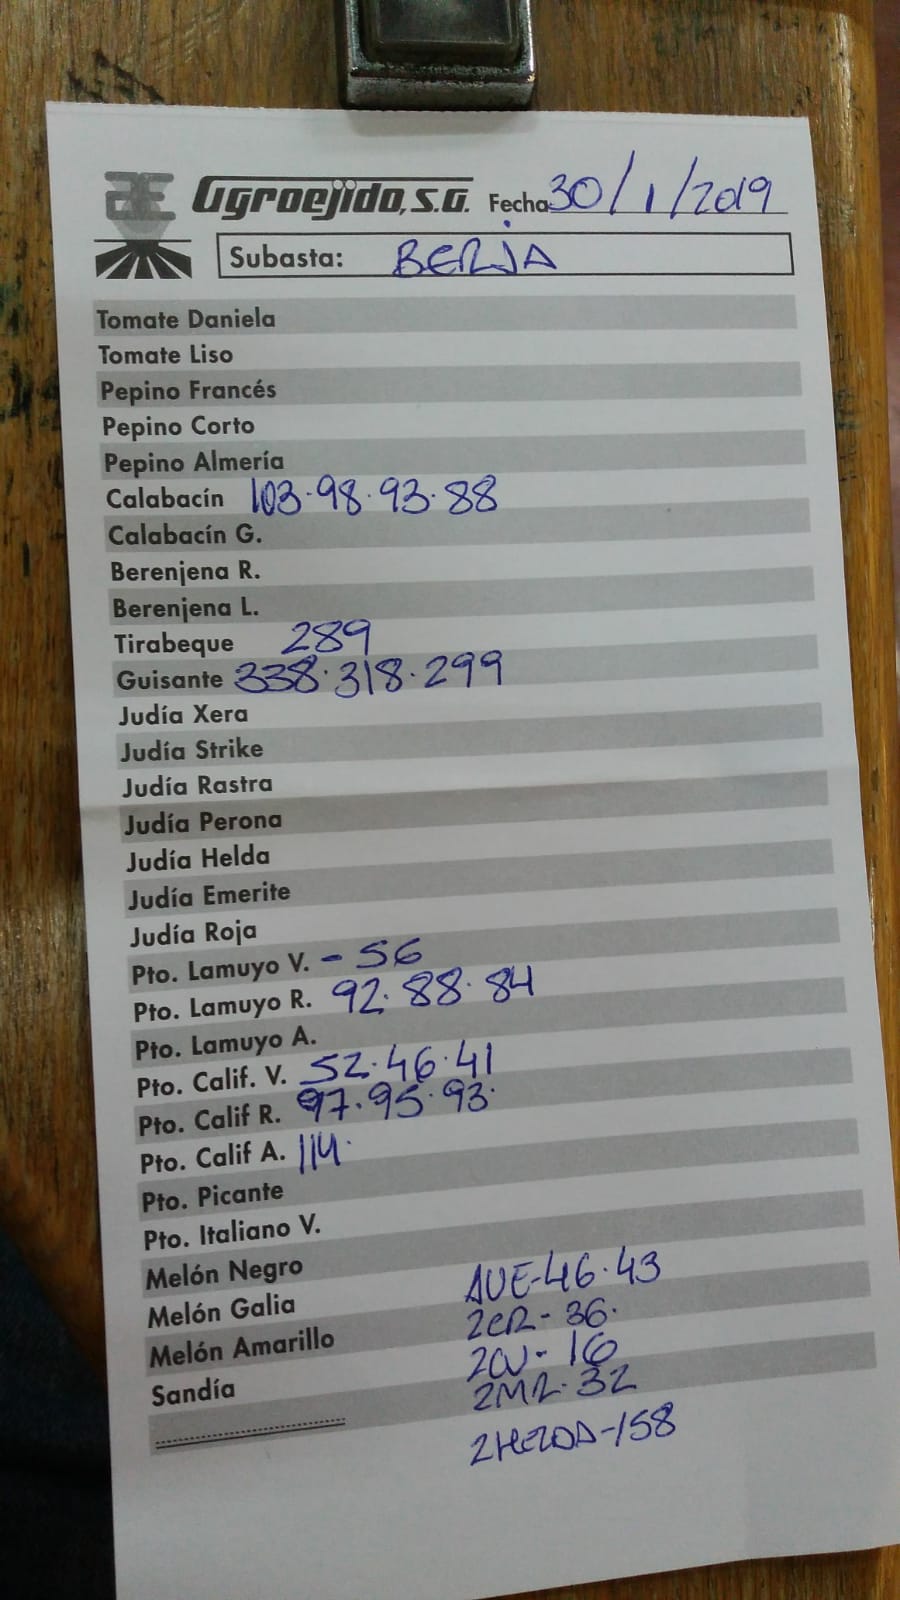 Agroejido, S.A. Fecha 30/1/2019
Subasta: BERJA
Tomate Daniela
Tomate Liso
Pepino Francés
Pepino Corto
Pepino Almería
Calabacín 103·98·93·88
Calabacín G.
Berenjena R.
Berenjena L.
Tirabeque 289
Guisante 338·318·299
Judía Xera
Judía Strike
Judía Rastra
Judía Perona
Judía Helda
Judía Emerite
Judía Roja
Pto. Lamuyo V. - 56
Pto. Lamuyo R. 92·88·84
Pto. Lamuyo A.
Pto. Calif. V. 52·46·41
Pto. Calif R. 97·95·93·
Pto. Calif A. 114·
Pto. Picante
Pto. Italiano V.
Melón Negro
Melón Galia
Melón Amarillo
Sandía
AUE-46·43
2CR-36·
2CV-16
2MR-32
2HELDA-158